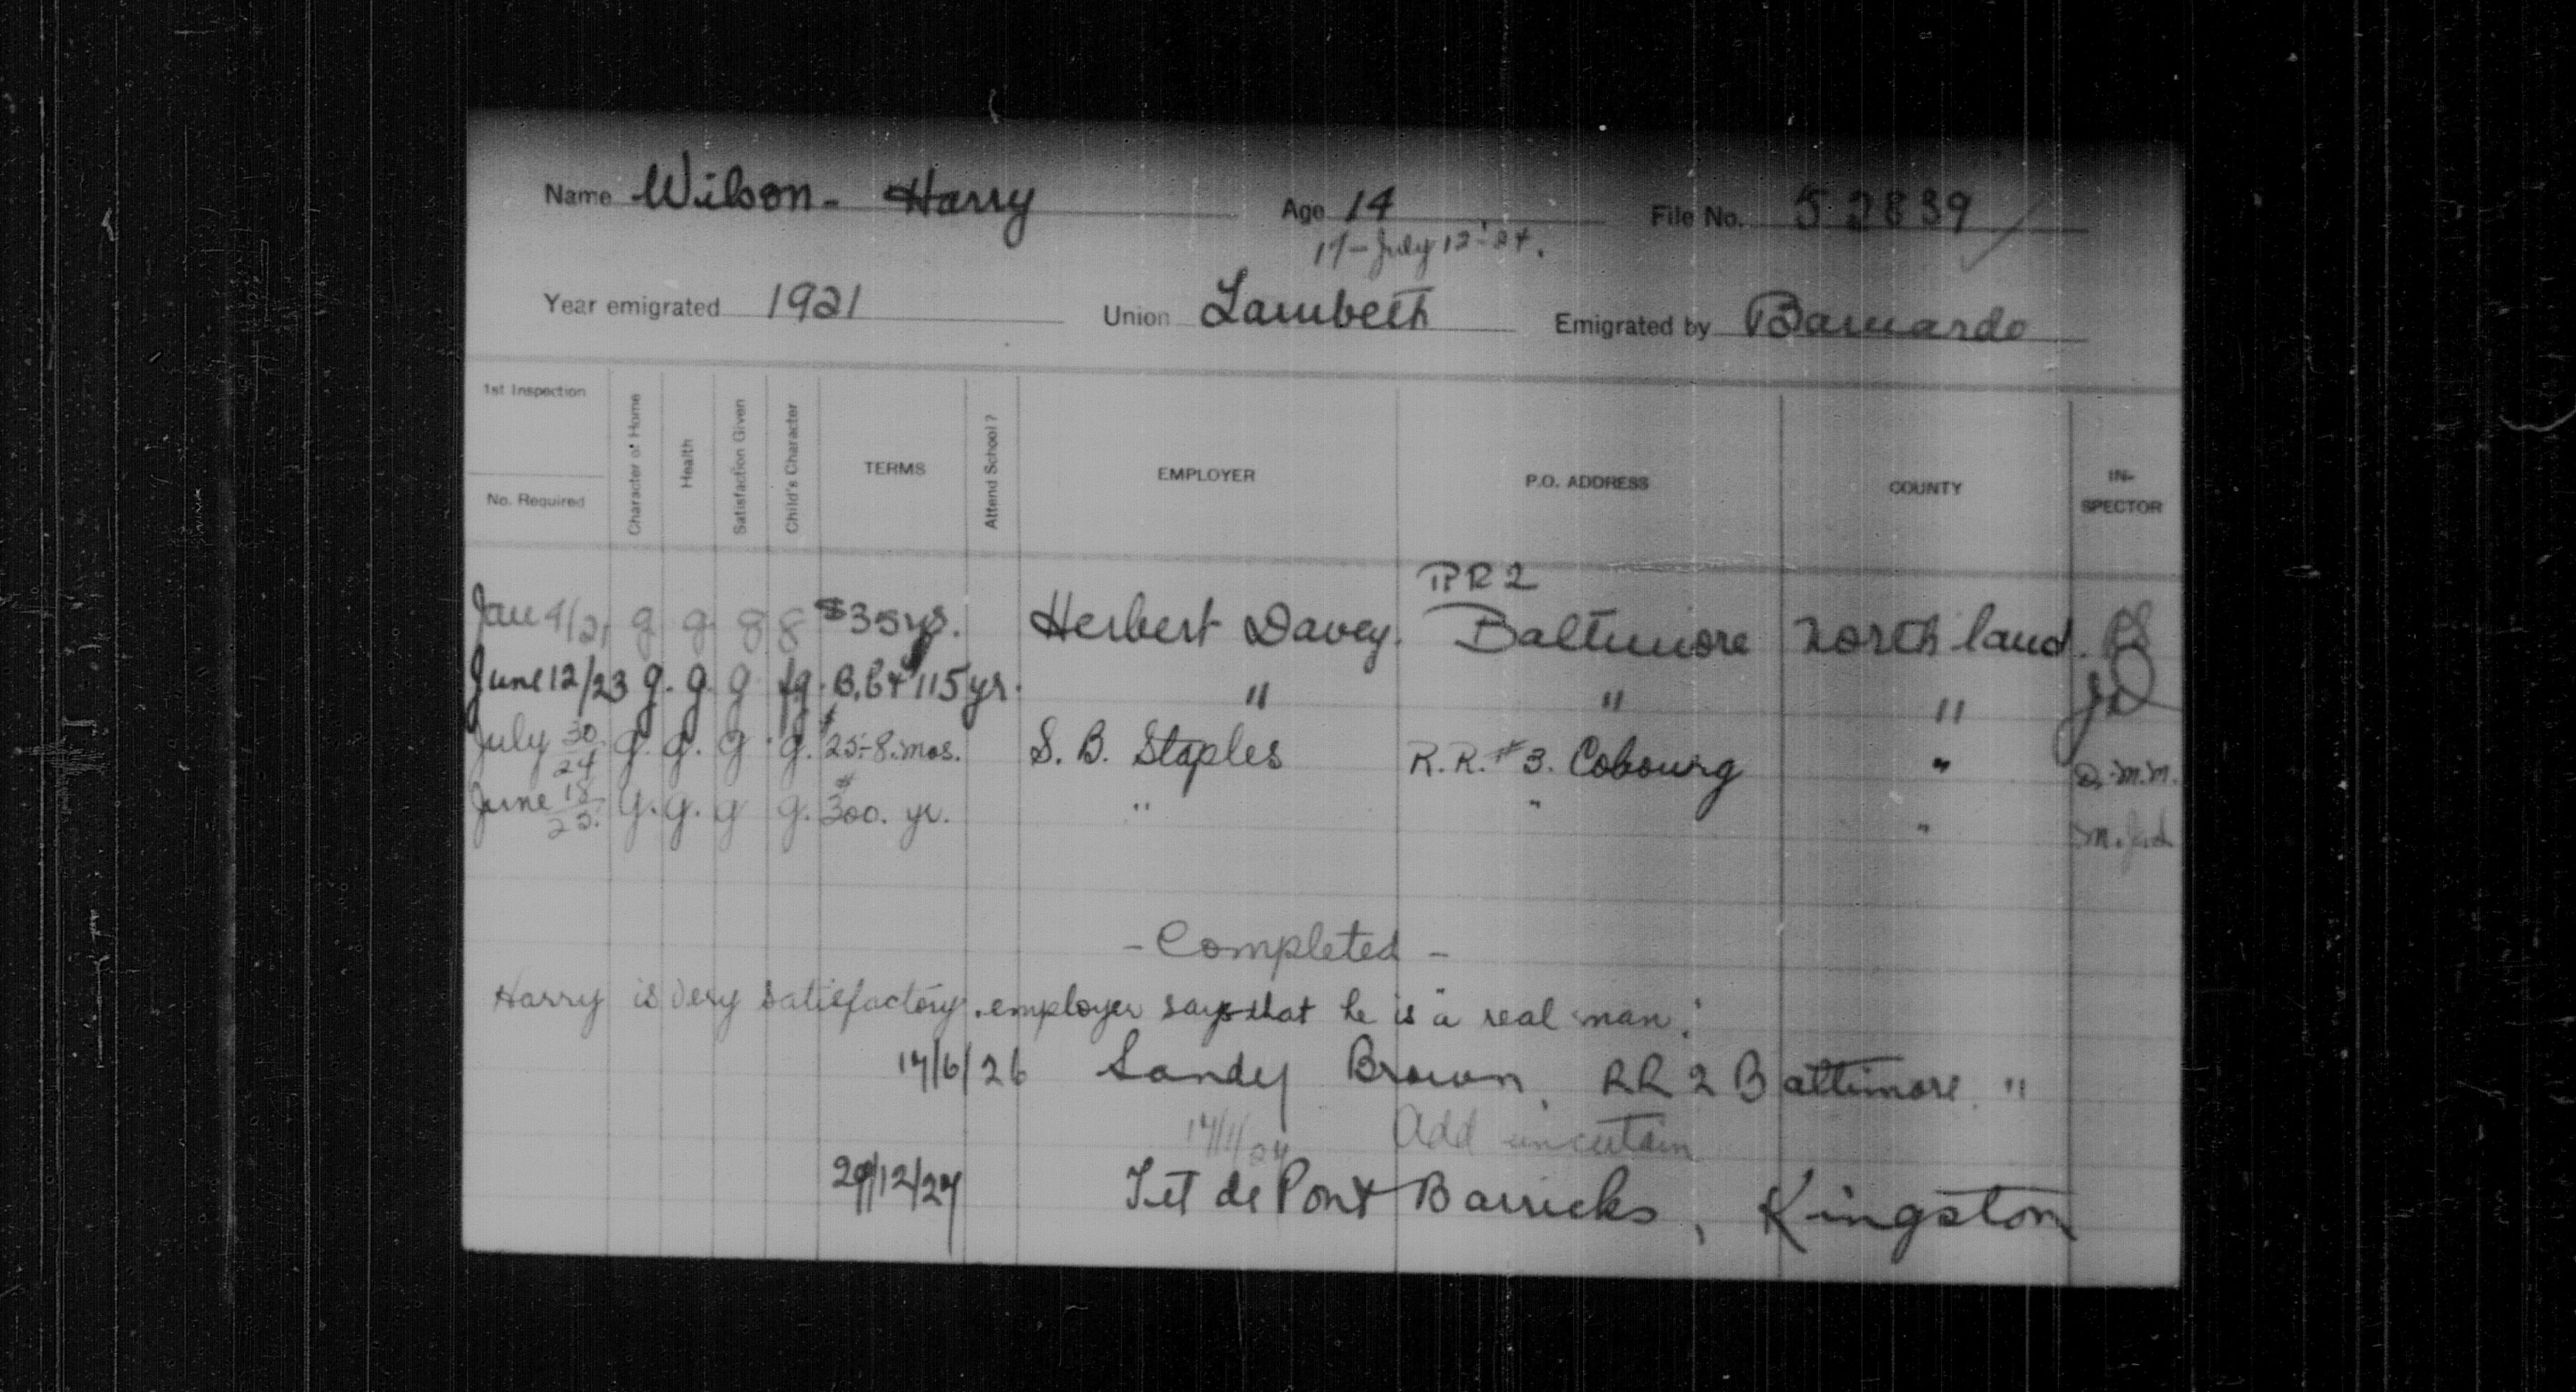 Name Wilson - Harry Age 14 File No. 52839
17 - July 12 - 24.
Year emigrated 1921 Union Lambeth Emigrated by Barnardo
1st Inspection
No. Required
Character of Home
Health
Satisfaction Given
Child's Character
TERMS
Attend School?
EMPLOYER
P.O. ADDRESS
COUNTY
IN-
SPECTOR
RR2
g g g g $35 yr. Herbert Davey. Baltimore North land.
June 12/23 g. g. g fg. 115 yr. " " "
July 30/24 g. g. g. g. $25-8.mos. S. B. Staples R.R.#3. Cobourg " D.M.M.
June 18 g. g. g g. $300. yr. " " "
- Completed -
Harry is very satisfactory. employer says that he is "a real man."
17/6/26 Sandy Brown, RR2 Baltimore. "
Add uncertain
29/12/27 Tet de Pont Barricks, Kingston